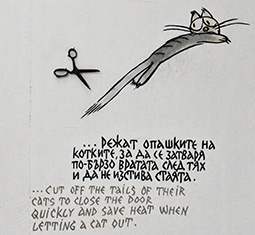 ... РЕЖАТ ОПАШКИТЕ НА
КОТКИТЕ, ЗА ДА СЕ ЗАТВАРЯ
ПО-БЪРЗО ВРАТАТА СЛЕД ТЯХ
И ДА НЕ ИЗСТИВА СТАЯТА.
... CUT OFF THE TAILS OF THEIR
CATS TO CLOSE THE DOOR
QUICKLY AND SAVE HEAT WHEN
LETTING A CAT OUT.